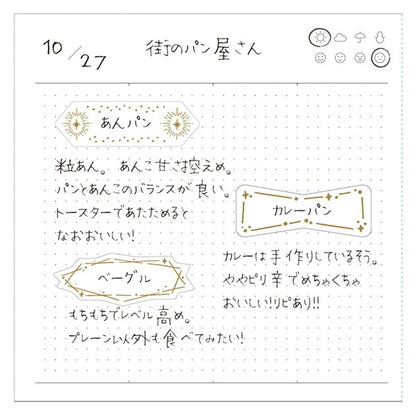 10/27
街のパン屋さん
あんパン
粒あん。あんこ甘さ控えめ。
パンとあんこのバランスが良い。
トースターであたためると
なおおいしい!
カレーパン
カレーは手作りしているそう。
ややピリ辛でめちゃくちゃ
おいしい!リピあり!!
ベーグル
もちもちでレベル高め。
プレーン以外も食べてみたい!